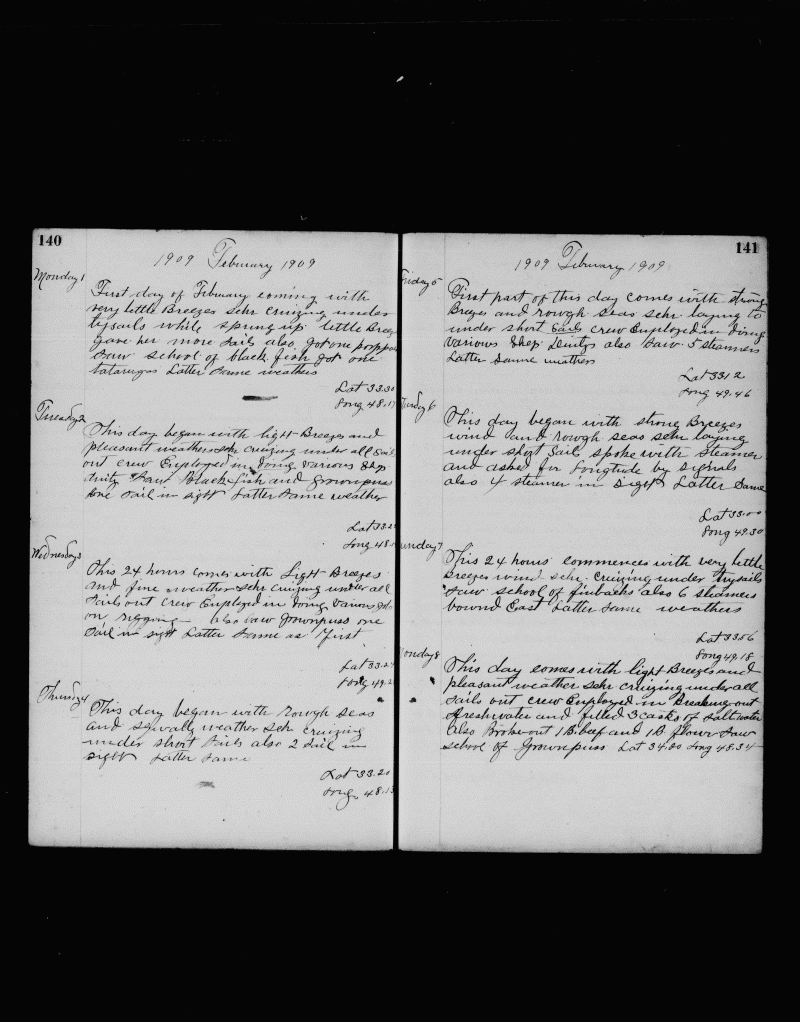 140
1909 February 1909
Monday 1
First day of February coming with
very little Breezes Schr cruizing under
tysails while spring up little Breez
gave her more Sails also got one
Saw School of black fish got one
Latter Same weathers
Lat 33.30
Long 48.17
Tuesday 2
This day began with light Breezes and
pleasant weather Schr cruizing under all Sail
out crew Employed in Doing various Shp
duty Saw Black fish and Grownpuss
one Sail in sight Latter Same weather
Lat 33.2
Long 48.
Wednesday 3
This 24 hours comes with Light Breezes
and fine weather Schr cruizing under all
Sails out crew Employed in Doing various Job
on rigging also Saw Grownpuss one
Sail in sight Latter Same as First
Lat 33.27
Long 49.2
Thursday 4
This day began with Rough Seas
and Squally weather Sch cruizing
under short Sails also 2 Sail in
sight Latter Same
Lat 33.20
Long 48.13
141
1909 February 1909
Friday 5
First part of this day comes with strong
Breezes and rough Seas Schr laying to
under short Sails crew Employed in Doing
various Shep Deutys also Saw 5 steamers
Latter Same weathers
Lat 3312
Long 49.46
turday 6
This day began with strong Breezes
wind and rough seas Schr laying
under short Sail spoke with steamer
and asked for Longtude by signals
also 4 steamer in Sight Latter Same
Lat 33.00
Long 49.30
unday 7
This 24 hours commences with very little
Breezes wind Schr cruizing under trysails
Saw school of finbacks also 6 steamers
bound East Latter Same weathers
Lat 33.56
Long 49.18
onday 8
This day comes with light Breezes and
pleasant weather Schr cruizing under all
Sails out crew Employed in Breaking out
freshwater and filled 3 casks of salt water
also Broke out 1 B. beef and 1 B flour Saw
school of Grownpuss Lat 34.00 Long 48.34